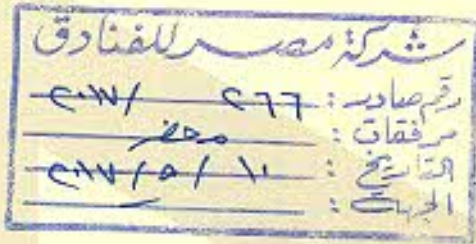 شركة مصر للفنادق
رقم صادر : ٢٦٦ / ٢٠١٧
مرفقات : محضر
التاريخ : ١٠ / ٥ / ٢٠١٧
الجهة :